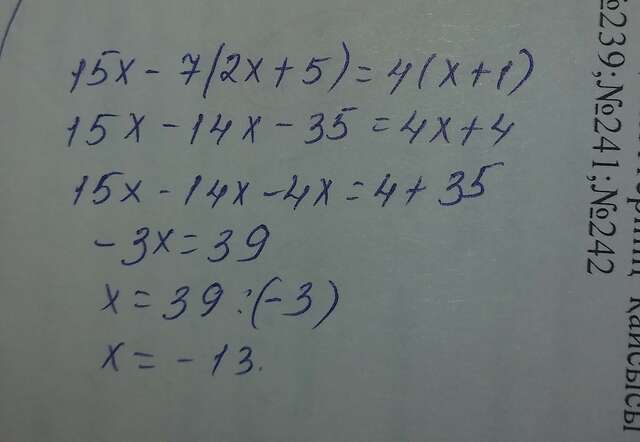 15x - 7(2x + 5) = 4(x + 1)
15x - 14x - 35 = 4x + 4
15x - 14x - 4x = 4 + 35
- 3x = 39
x = 39 : (-3)
x = - 13.
№239;№241;№242
қайсысы